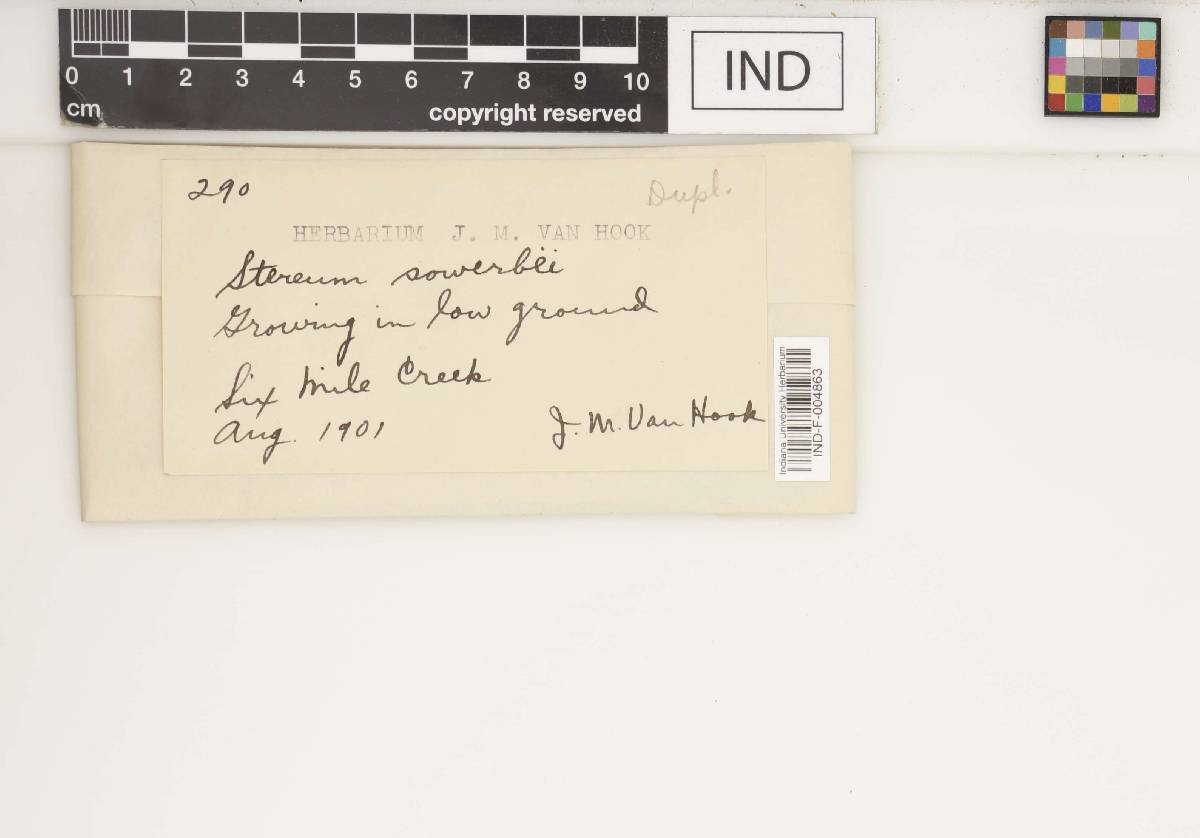 0 1 2 3 4 5 6 7 8 9 10
cm
copyright reserved
IND
290
Dupl.
HERBARIUM J. M. VAN HOOK
Stereum sowerbëi
Growing in low ground
Six Mile Creek
Aug. 1901
J. M. Van Hook
Indiana University Herbarium
IND-F-004863